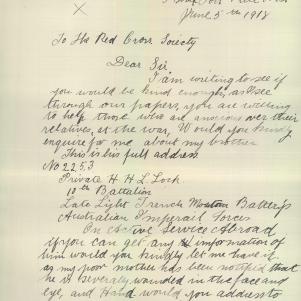 June 5th 1918
To The Red Cross Society
Dear Sir
I am writing to see if
you would be kind enough as I see
through our papers, you are willing
to help those who are anxious over their
relatives, at the war, Would you kindly
enquire for me about my brother
This is his full address
No 2253
Private H H L Lock
10th Battalion
Late Light Trench Mortar Battery
Australian Imperial Forces
On active Service Abroad
if you can get any information of
him would you kindly let me have it
as my poor mother has been notified that
he is severely wounded in the face and
eye, and Hand would you address to